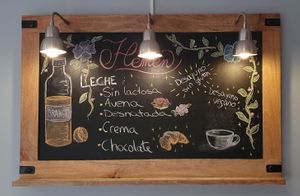 Hemen
LECHE
• Sin lactosa
• Avena
• Desnatada
• Crema
• Chocolate
Desayuno
sin gluten
Desayuno
vegano